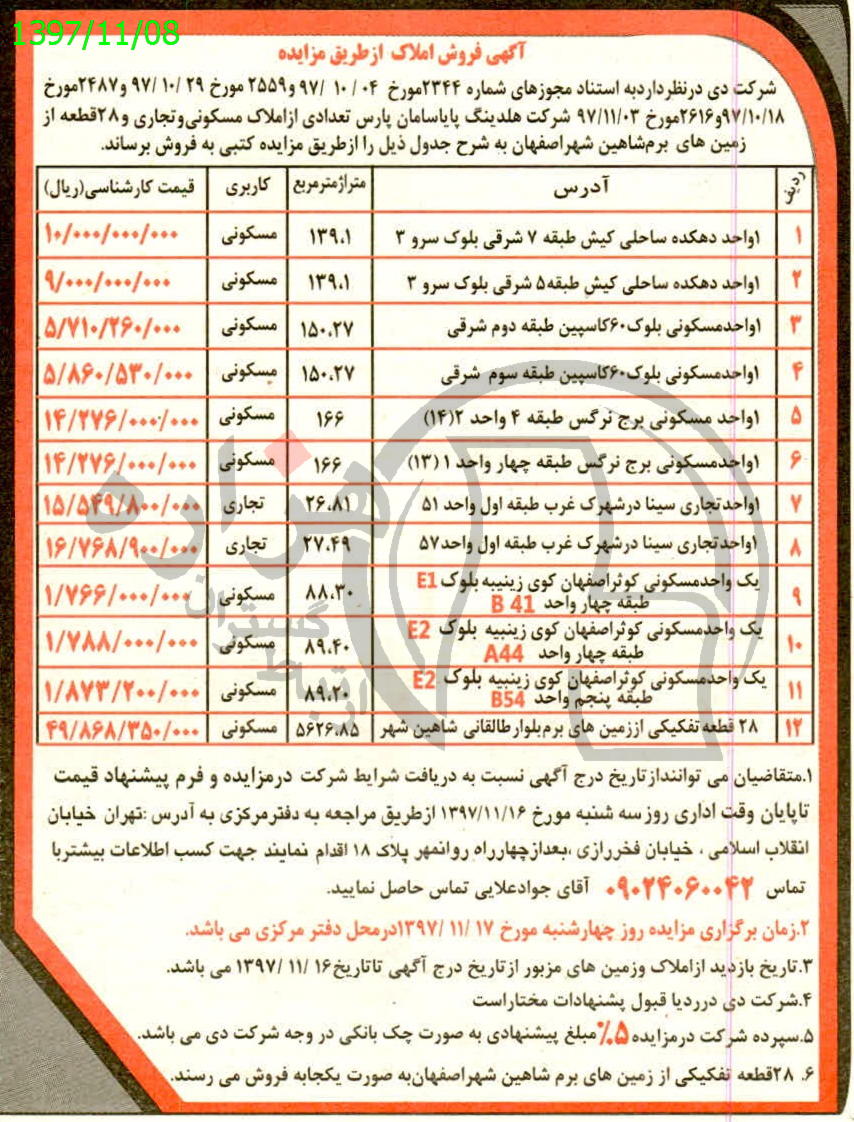 1397/11/08
آگهی فروش املاک ازطریق مزایده
شرکت دی درنظرداردبه استناد مجوزهای شماره ۲۳۴۴مورخ ۰۴/ ۱۰ /۹۷ و۲۵۵۹ مورخ ۲۹ /۱۰ /۹۷ و۲۴۸۷مورخ
۹۷/۱۰/۱۸و۲۶۱۶مورخ ۹۷/۱۱/۰۳ شرکت هلدینگ پایاسامان پارس تعدادی ازاملاک مسکونی‌وتجاری و۲۸قطعه از
زمین های برم‌شاهین شهراصفهان به شرح جدول ذیل را ازطریق مزایده کتبی به فروش برساند.
ردیف آدرس متراژمترمربع کاربری قیمت کارشناسی(ریال)
۱ ۱واحد دهکده ساحلی کیش طبقه ۷ شرقی بلوک سرو ۳ ۱۳۹.۱ مسکونی ۱۰/۰۰۰/۰۰۰/۰۰۰
۲ ۱واحد دهکده ساحلی کیش طبقه۵ شرقی بلوک سرو ۳ ۱۳۹.۱ مسکونی ۹/۰۰۰/۰۰۰/۰۰۰
۳ ۱واحدمسکونی بلوک۶۰کاسپین طبقه دوم شرقی ۱۵۰.۲۷ مسکونی ۵/۷۱۰/۲۶۰/۰۰۰
۴ ۱واحدمسکونی بلوک۶۰کاسپین طبقه سوم شرقی ۱۵۰.۲۷ مسکونی ۵/۸۶۰/۵۳۰/۰۰۰
۵ ۱واحد مسکونی برج نرگس طبقه ۴ واحد ۲(۱۴) ۱۶۶ مسکونی ۱۴/۲۷۶/۰۰۰/۰۰۰
۶ ۱واحدمسکونی برج نرگس طبقه چهار واحد ۱ (۱۳) ۱۶۶ مسکونی ۱۴/۲۷۶/۰۰۰/۰۰۰
۷ ۱واحدتجاری سینا درشهرک غرب طبقه اول واحد ۵۱ ۲۶.۸۱ تجاری ۱۵/۵۴۹/۸۰۰/۰۰۰
۸ ۱واحدتجاری سینا درشهرک غرب طبقه اول واحد۵۷ ۲۷.۴۹ تجاری ۱۶/۷۶۸/۹۰۰/۰۰۰
۹ یک واحدمسکونی کوثراصفهان کوی زینبیه بلوک E1
طبقه چهار واحد B 41 ۸۸.۳۰ مسکونی ۱/۷۶۶/۰۰۰/۰۰۰
۱۰ یک واحدمسکونی کوثراصفهان کوی زینبیه بلوک E2
طبقه چهار واحد A44 ۸۹.۴۰ مسکونی ۱/۷۸۸/۰۰۰/۰۰۰
۱۱ یک واحدمسکونی کوثراصفهان کوی زینبیه بلوک E2
طبقه پنجم واحد B54 ۸۹.۲۰ مسکونی ۱/۸۷۳/۲۰۰/۰۰۰
۱۲ ۲۸ قطعه تفکیکی اززمین های برم‌بلوارطالقانی شاهین شهر ۵۶۲۶.۸۵ مسکونی ۴۹/۸۶۸/۳۵۰/۰۰۰
هزاره
گستران
ارتباط
۱.متقاضیان می تواننداز‌تاریخ درج آگهی نسبت به دریافت شرایط شرکت درمزایده و فرم پیشنهاد قیمت
تاپایان وقت اداری روزسه شنبه مورخ ۱۳۹۷/۱۱/۱۶ ازطریق مراجعه به دفترمرکزی به آدرس :تهران خیابان
انقلاب اسلامی ، خیابان فخررازی ،بعدازچهارراه روانمهر پلاک ۱۸ اقدام نمایند جهت کسب اطلاعات بیشتربا
تماس ۰۹۰۲۴۰۶۰۰۴۲ آقای جوادعلایی تماس حاصل نمایید.
۲.زمان برگزاری مزایده روز چهارشنبه مورخ ۱۷ /۱۱ /۱۳۹۷درمحل دفتر مرکزی می باشد.
۳.تاریخ بازدید ازاملاک وزمین های مزبور ازتاریخ درج آگهی تاتاریخ۱۶ /۱۱ /۱۳۹۷ می باشد.
۴.شرکت دی درردیا قبول پشنهادات مختاراست
۵.سپرده شرکت درمزایده ۵٪مبلغ پیشنهادی به صورت چک بانکی در وجه شرکت دی می باشد.
۶. ۲۸قطعه تفکیکی از زمین های برم شاهین شهراصفهان‌به صورت یکجابه فروش می رسند.